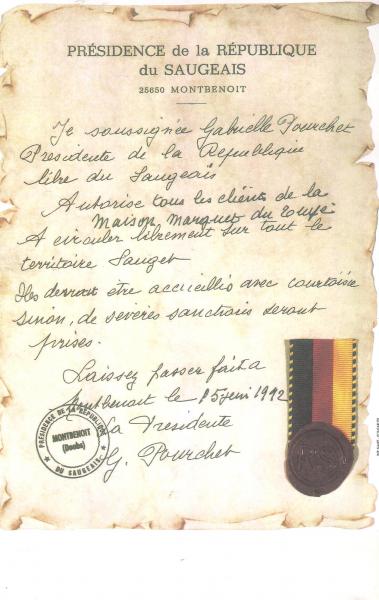 PRÉSIDENCE de la RÉPUBLIQUE
du SAUGEAIS
25650 MONTBENOIT
Je soussignée Gabrielle Pourchet
Présidente de la République
libre du Saugeais
Autorise tous les clients de la
Maison Marguet du
A circuler librement sur tout le
territoire Sauget
Ils devront être accueillis avec courtoisie
sinon, de sevères sanctions seront
prises.
Laissez passer fait a
Montbenoit le 1992
La Présidente
G. Pourchet
PRÉSIDENCE DE LA RÉPUBLIQUE
MONTBENOIT
(Doubs)
DU SAUGEAIS